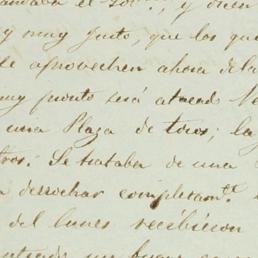 y muy justo, que los que
se aprovechen ahora de la
muy pronto será atacado Ve
una Plaza de toros; la
tros. Se trataba de una
a derrochar completamte.
del lunes recibieron
un buen